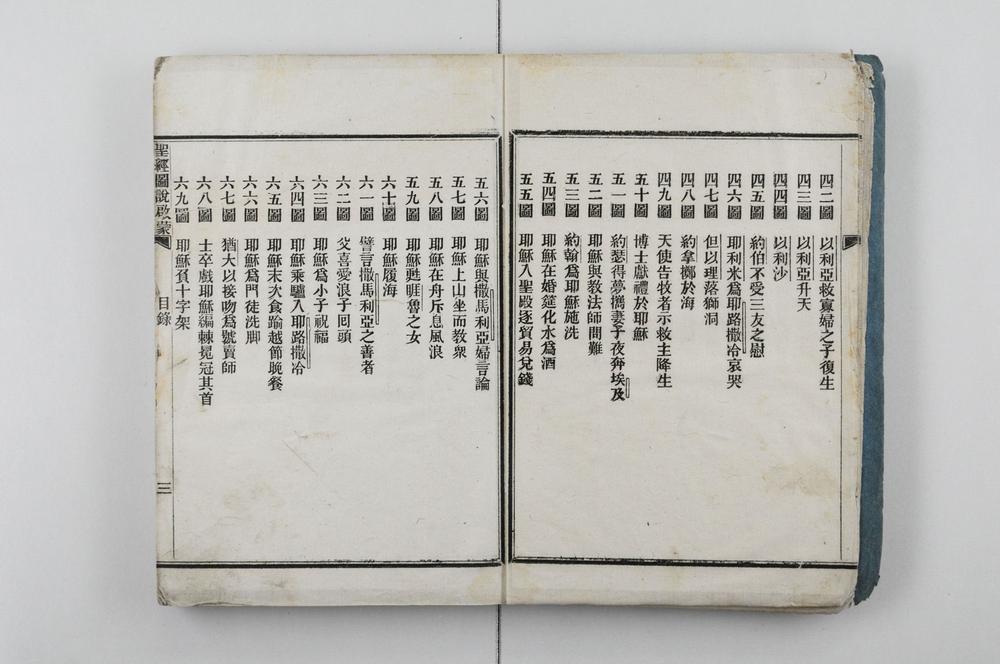 四二圖 以利亞救寡婦之子復生
四三圖 以利亞升天
四四圖 以利沙
四五圖 約伯不受三友之慰
四六圖 耶利米為耶路撒冷哀哭
四七圖 但以理落獅洞
四八圖 約拿擲於海
四九圖 天使告牧者示救主降生
五十圖 博士獻禮於耶穌
五一圖 約瑟得夢攜妻子夜奔埃及
五二圖 耶穌與教法師問難
五三圖 約翰為耶穌施洗
五四圖 耶穌在婚筵化水為酒
五五圖 耶穌入聖殿逐貿易兌錢
五六圖 耶穌與撒馬利亞婦言論
五七圖 耶穌上山坐而教衆
五八圖 耶穌在舟斥息風浪
五九圖 耶穌甦睚魯之女
六十圖 耶穌履海
六一圖 譬言撒馬利亞之善者
六二圖 父喜愛浪子回頭
六三圖 耶穌為小子祝福
六四圖 耶穌乘驢入耶路撒冷
六五圖 耶穌末次食踰越節晚餐
六六圖 耶穌為門徒洗脚
六七圖 猶大以接吻為號賣師
六八圖 士卒戲耶穌編棘冕冠其首
六九圖 耶穌負十字架
聖經圖說啟蒙 目錄 三